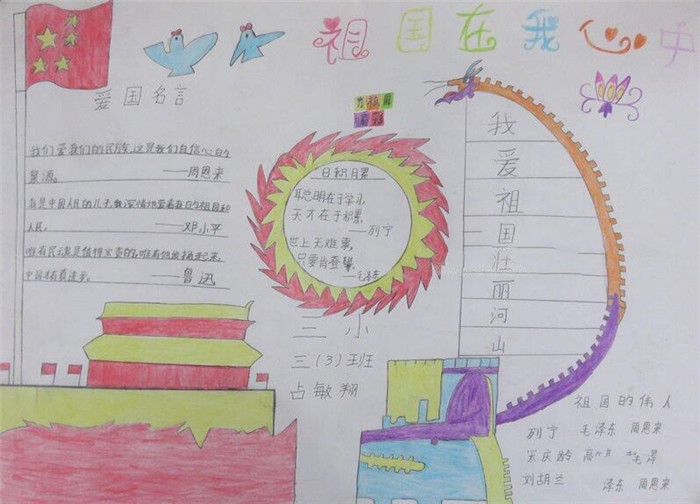 祖国在我心中
爱国名言
我们爱我们的民族,这是我们自信心的
泉源。 ——周恩来
我是中国人民的儿子,我深情地爱着我的祖国和
人民。 ——邓小平
唯有民魂是值得宝贵的,唯有他发扬起来,
中国才有真进步。 ——鲁迅
日积月累
聪明在于学习,
天才在于积累。
——列宁
世上无难事,
只要肯登攀。
——毛泽东
三小
三(3)班
占敏翔
我爱祖国壮丽河山
祖国的伟人
列宁 毛泽东 周恩来
宋庆龄
刘胡兰 泽东 周恩来